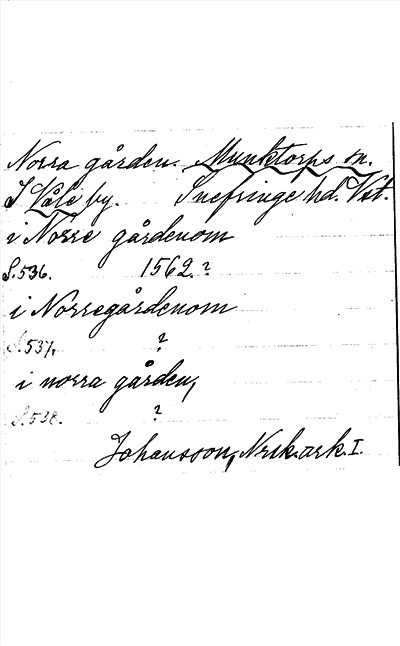 Norra gården. Munktorps sn.
I Våle by. Snefringe hd. Vst.
i Norre gårdenom
S. 536. 1562. ?
i Norregårdenom
S. 537. ?
i norra gården,
S. 538. ?
Johansson, Nrik. ark. I.